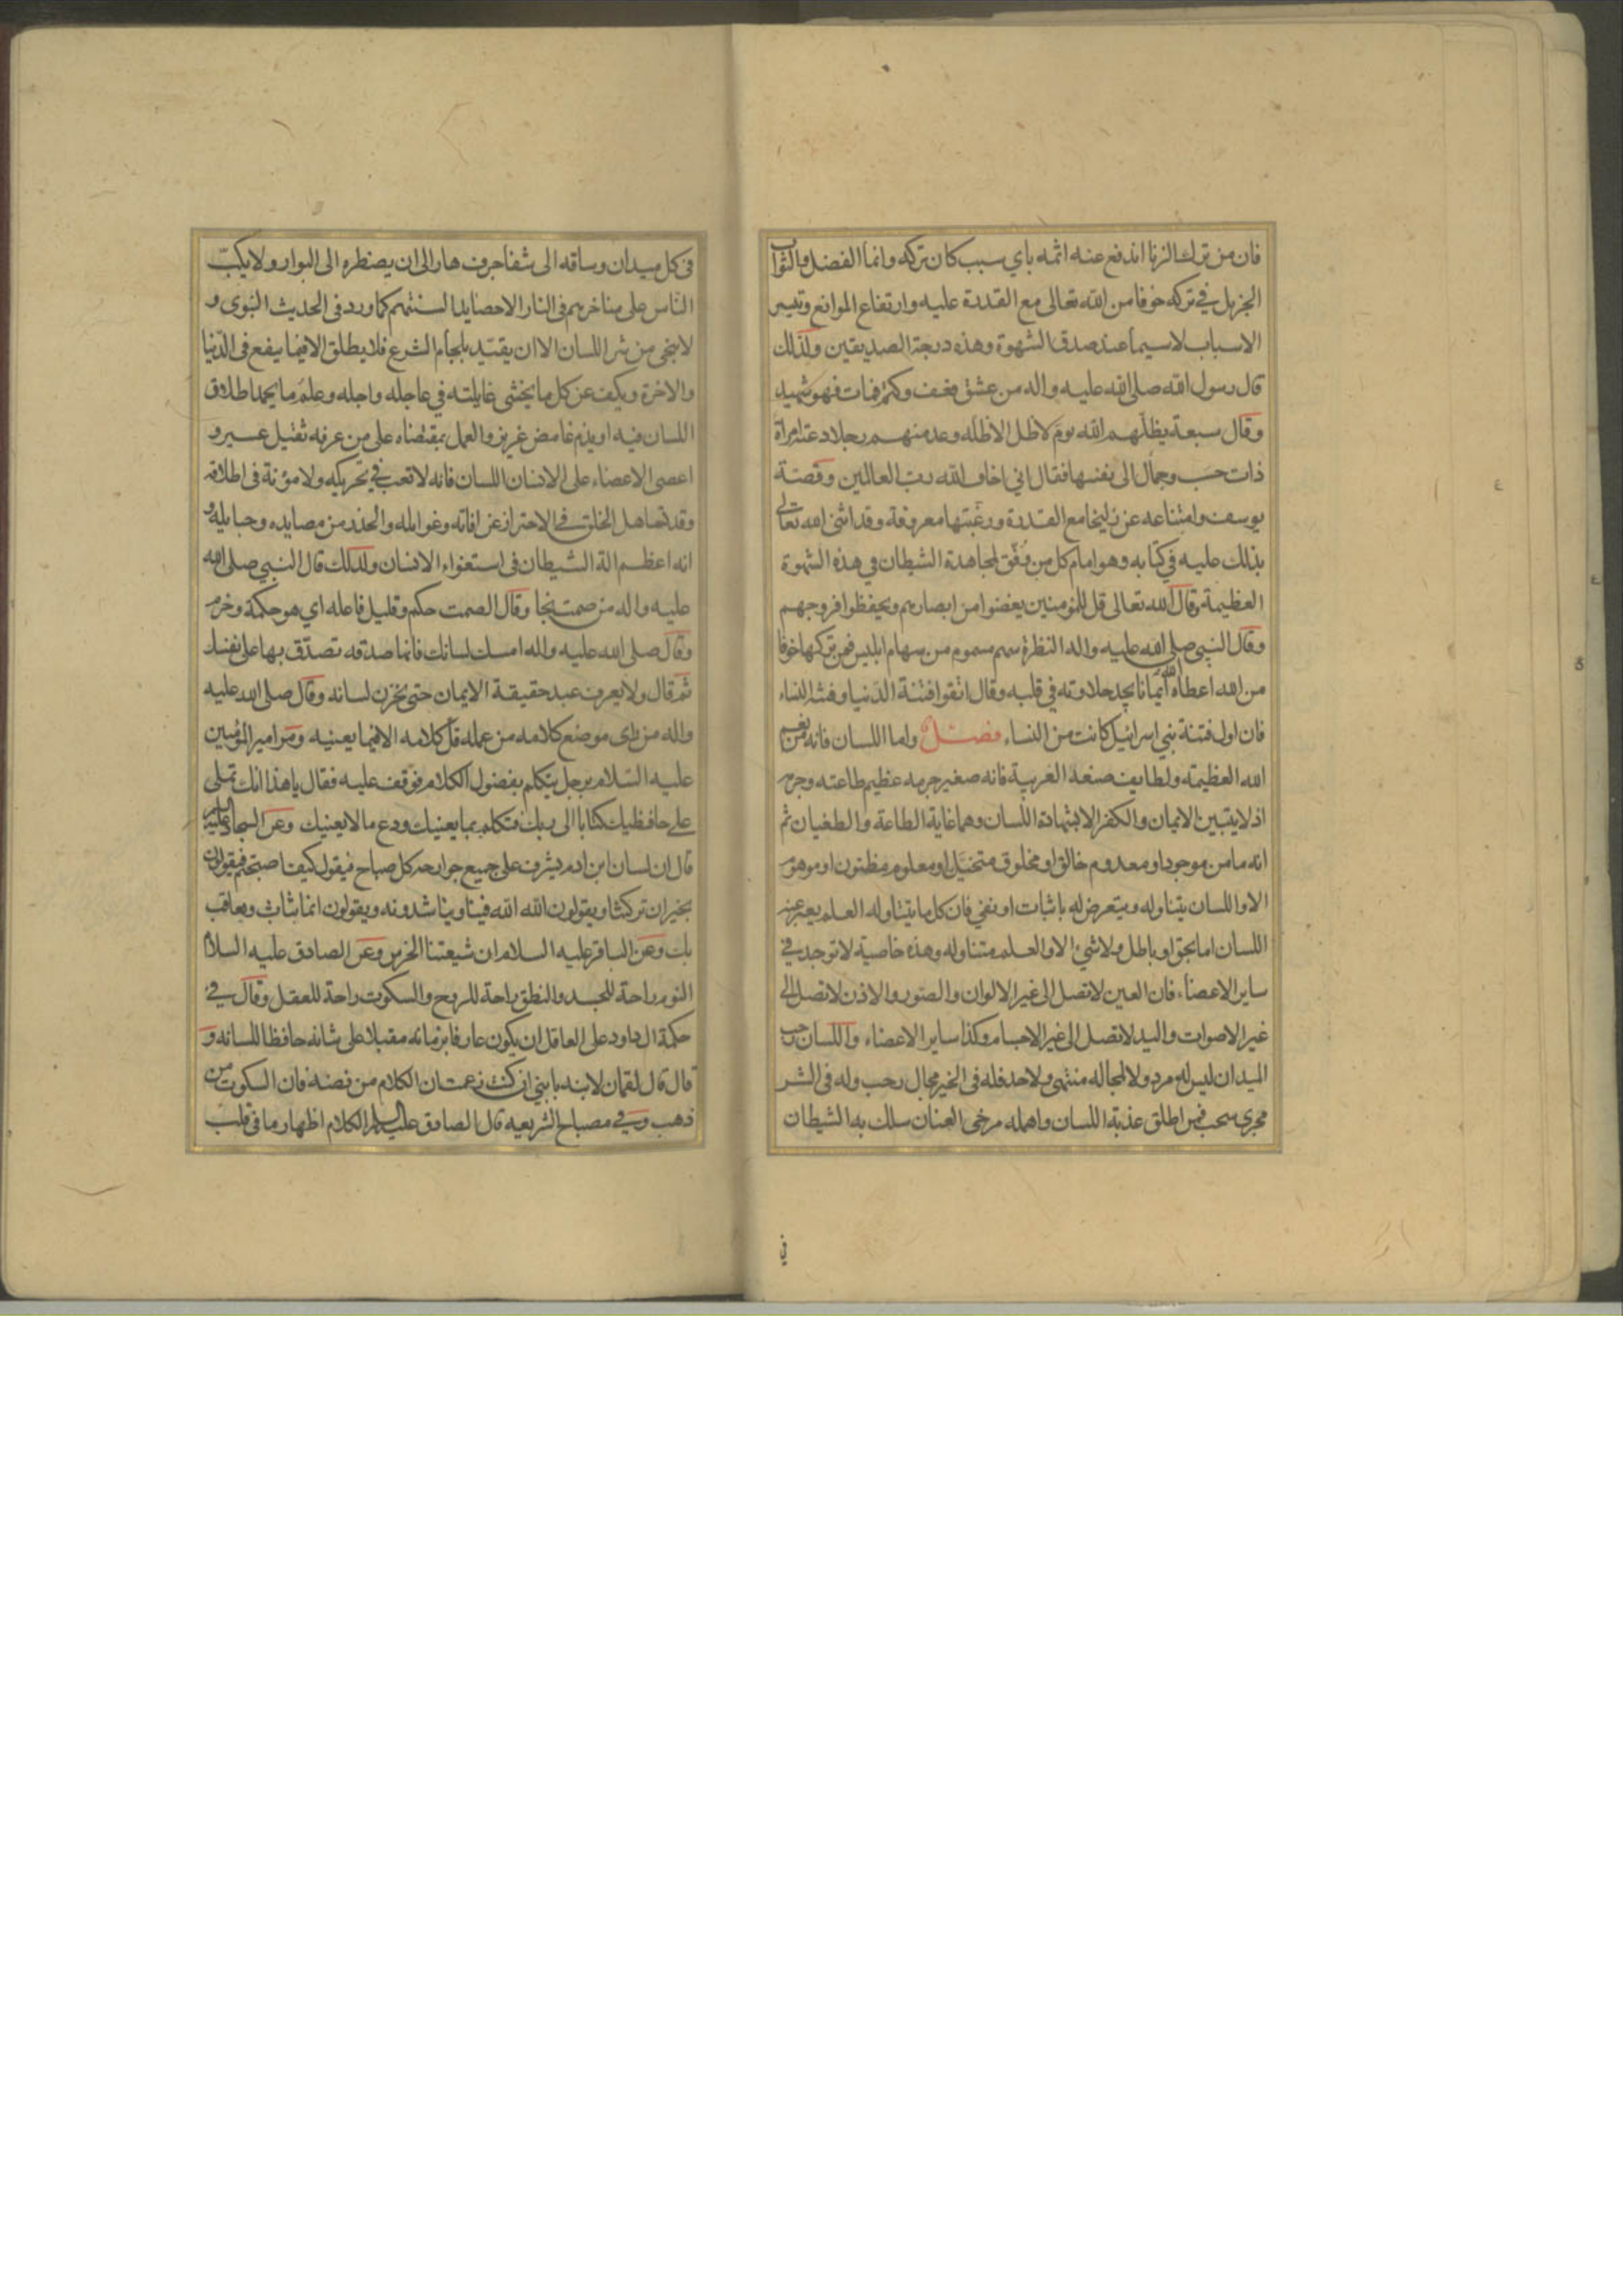 فان من ترك الزنا اندفع عنه اثمه باي سبب كان تركه وانما الفضل والثواب
الجزيل في تركه خوفا من الله تعالى مع القدرة عليه وارتفاع الموانع وتيسر
الاسباب لاسيما عند صدق الشهوة وهذه درجة الصديقين ولذلك
قال رسول الله صلى الله عليه واله من عشق فعف وكتم فمات فهو شهيد
وقال سبعة يظلهم الله يوم لا ظل الا ظله وعد منهم رجلا دعته امراة
ذات حسب وجمال الى نفسها فقال اني اخاف الله رب العالمين وقصة
يوسف وامتناعه عن زليخا مع القدرة ورغبتها معروفة وقد اثنى الله تعالى
بذلك عليه في كتابه وهو امام كل من وفق لمجاهدة الشيطان في هذه الشهوة
العظيمة وقال الله تعالى قل للمؤمنين يغضوا من ابصارهم ويحفظوا فروجهم
وقال النبي صلى الله عليه واله النظرة سهم مسموم من سهام ابليس فمن تركها خوفا
من الله اعطاه الله ايمانا يجد حلاوته في قلبه وقال اتقوا فتنة الدنيا وفتنة النساء
فان اول فتنة بني اسرائيل كانت من النساء فصل واما اللسان فانه من نعم
الله العظيمة ولطايف صنعه الغريبة فانه صغير جرمه عظيم طاعته وجرمه
اذ لا يتبين الايمان والكفر الا بشهادة اللسان وهما غاية الطاعة والطغيان ثم
انه ما من موجود او معدوم خالق او مخلوق متخيل او معلوم مظنون او موهوم
الا واللسان يتناوله ويتعرض له باثبات او نفي فان كل ما يتناوله العلم يعبر عنه
اللسان اما بحق او باطل ولا شيء الا والعلم متناوله وهذه خاصية لا توجد في
ساير الاعضاء فان العين لا تصل الى غير الالوان والصور والاذن لا تصل الى
غير الاصوات واليد لا تصل الى غير الاجسام وكذا ساير الاعضاء واللسان رحب
الميدان ليس له مرد ولا لمجاله منتهى ولا حد فله في الخير مجال رحب وله في الشر
مجرى سحب فمن اطلق عذبة اللسان واهمله مرخى العنان سلك به الشيطان
في
في كل ميدان وساقه الى شفا جرف هار الى ان يضطره الى البوار ولا يكب
الناس على مناخرهم في النار الا حصايد السنتهم كما ورد في الحديث النبوي و
لا ينجى من شر اللسان الا ان يقيد بلجام الشرع فلا يطلق الا فيما ينفع في الدنيا
والاخرة ويكف عن كل ما يخشى غايلته في عاجله واجله وعلم ما يحمد اطلاق
اللسان فيه او يذم غامض عزيز والعمل بمقتضاه على من عرفه ثقيل عسير و
اعصى الاعضاء على الانسان اللسان فانه لا تعب في تحريكه ولا مؤنة في اطلاقه
وقد تساهل الخلق في الاحتراز عن افاته وغوايله والحذر من مصايده وحبايله و
انه اعظم الة الشيطان في استغواء الانسان ولذلك قال النبي صلى الله
عليه واله من صمت نجا وقال الصمت حكم وقليل فاعله اي هو حكمة وحزم
وقال صلى الله عليه واله امسك لسانك فانها صدقه تصدق بها على نفسك
ثم قال ولا يعرف عبد حقيقة الايمان حتى يخزن لسانه وقال صلى الله عليه
واله من راى موضع كلامه من عمله قل كلامه الا فيما يعنيه ومر امير المؤمنين
عليه السلام برجل يتكلم بفضول الكلام فوقف عليه فقال يا هذا انك تملي
على حافظيك كتابا الى ربك فتكلم بما يعنيك ودع ما لا يعنيك وعن السجاد عليه السلم
قال ان لسان ابن ادم يشرف على جميع جوارحه كل صباح فيقول كيف اصبحتم فيقولون
بخير ان تركتنا ويقولون الله الله فينا ويناشدونه ويقولون انما نثاب ونعاقب
بك وعن الباقر عليه السلام ان شيعتنا الخرس وعن الصادق عليه السلام
النوم راحة للجسد والنطق راحة للروح والسكوت راحة للعقل وقال في
حكمة ال داود على العاقل ان يكون عارفا بزمانه مقبلا على شانه حافظا للسانه و
قال قال لقمان لابنه يا بني ان كنت زعمت ان الكلام من فضة فان السكوت من
ذهب وفي مصباح الشريعه قال الصادق عليه السلم الكلام اظهار ما في قلب